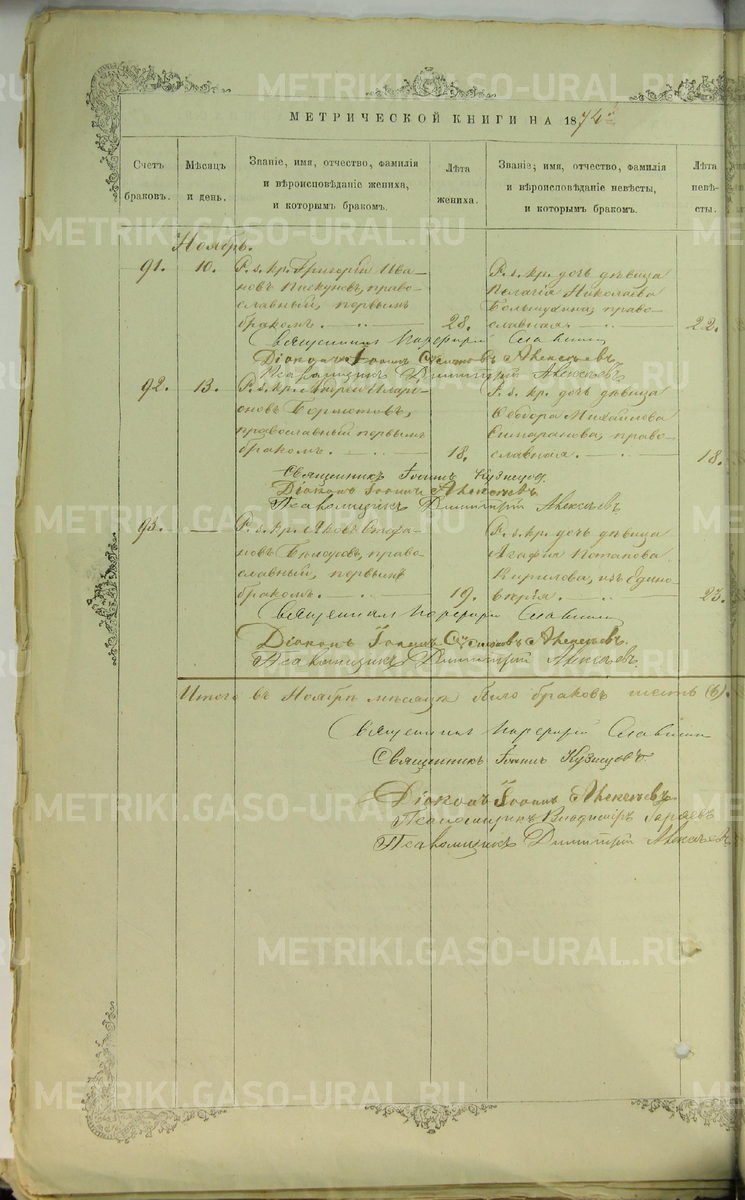 МЕТРИЧЕСКОЙ КНИГИ НА 1874
Счетъ браковъ.
Мѣсяцъ и день.
Званіе, имя, отчество, фамилія
и вѣроисповѣданіе жениха,
и которымъ бракомъ.
Лѣта
жениха.
Званіе, имя, отчество, фамилія
и вѣроисповѣданіе невѣсты,
и которымъ бракомъ.
Лѣта
невѣ-
сты.
Ноябрь.
91.
10.
Р. з. кр. Григорій Ива-
новъ Пискуновъ, право-
славный, первымъ
бракомъ.
28.
Р. з. кр. дочь дѣвица
Пелагія Николаева
право-
славная.
22.
Священникъ Порфирій Славнинъ
Діаконъ Іоаннъ Алексѣевъ
Псаломщикъ Димитрій Алексѣевъ
92.
13.
Р. з. кр. Андрей Иларі-
оновъ
православный первымъ
бракомъ.
18.
Р. з. кр. дочь дѣвица
Ѳедора Михайлова
право-
славная.
18.
Священникъ Іоаннъ Кузнецовъ.
Діаконъ Іоаннъ Алексѣевъ.
Псаломщикъ Димитрій Алексѣевъ
93.
—
Р. з. кр. Яковъ
новъ право-
славный, первымъ
бракомъ.
19.
Р. з. кр. дочь дѣвица
Агафія Потапова
Кирилова, изъ Едино-
вѣрія.
23.
Священникъ Порфирій Славнинъ
Діаконъ Іоаннъ Алексѣевъ.
Псаломщикъ Димитрій Алексѣевъ.
Итого въ Ноябрѣ мѣсяцѣ было браковъ шесть (6).
Священникъ Порфирій Славнинъ
Священникъ Іоаннъ Кузнецовъ.
Діаконъ Іоаннъ Алексѣевъ
Псаломщикъ Владиміръ
Псаломщикъ Димитрій Алексѣевъ
METRIKI.GASO-URAL.RU